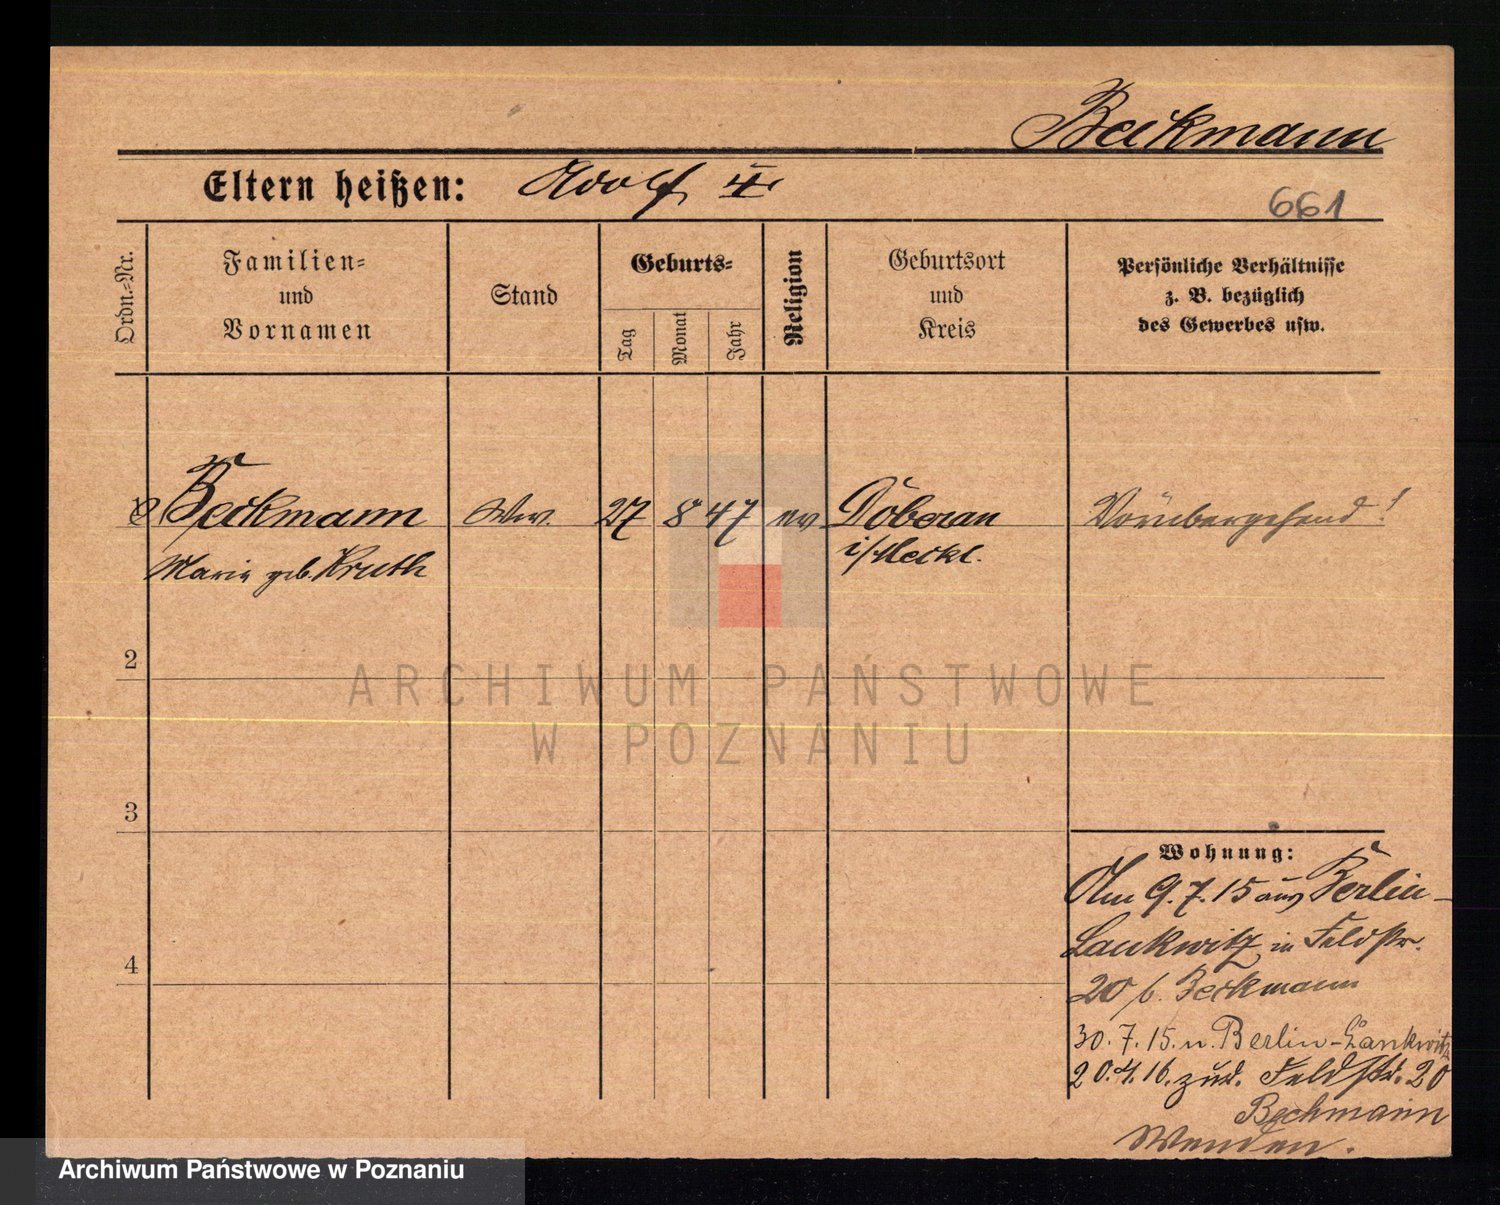 Beckmann
Eltern heißen: Adolf II
661
Ordn.-Nr.
Familien-
und
Vornamen
Stand
Geburts-
Tag
Monat
Jahr
Religion
Geburtsort
und
Kreis
Persönliche Verhältnisse
z. B. bezüglich
des Gewerbes usw.
Beckmann Ww. 27 8 47 ev Doberan Vorübergehend!
Marie geb. Kruth i/Meckl.
2
3
4
Wohnung:
Am 9.7.15 aus Berlin-
Lankwitz in Feldstr.
20 b. Beckmann
30.7.15. n. Berlin-Lankwitz
20.4.16. zur. Feldstr. 20
Beckmann
Wenden.
ARCHIWUM PAŃSTWOWE
W POZNANIU
Archiwum Państwowe w Poznaniu